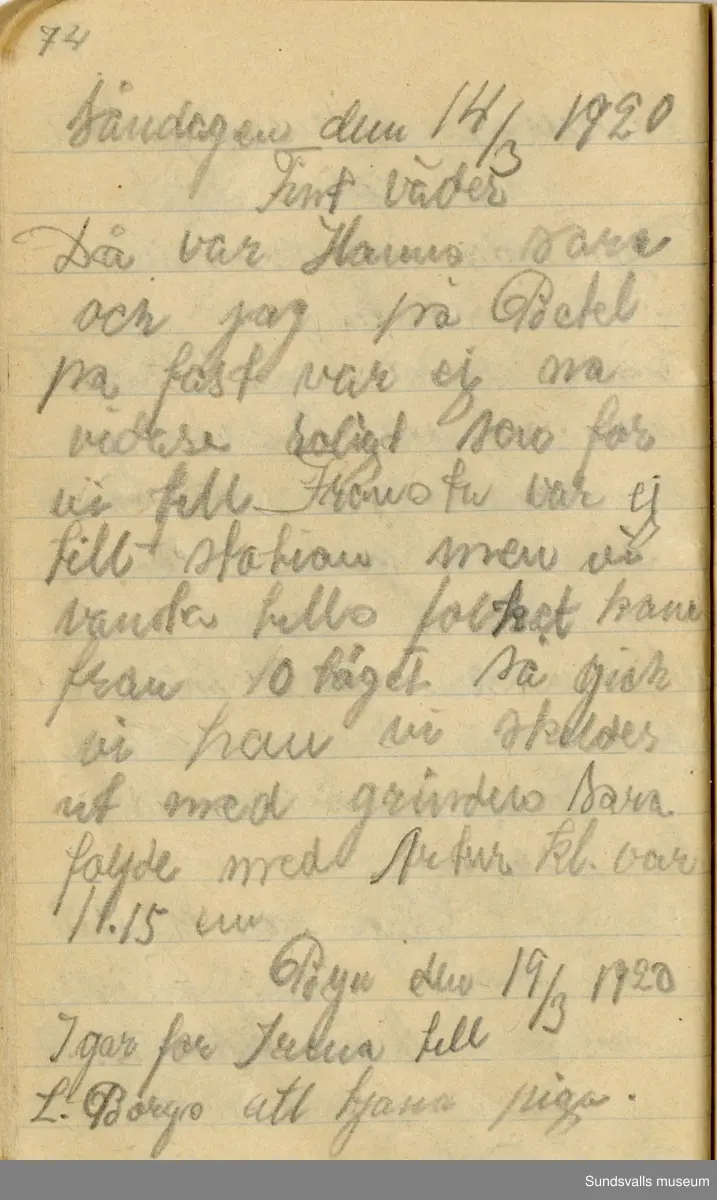 74
Söndagen den 14/3 1920
Fint väder
Då var Hanns Sara
och jag på Betel
pa fast var ej na
vidare roligt sen for
vi till Fransta var ej
till station men vi
vanta tills folket kom
fran 10 tåget så gick
vi hem vi skildes
ut med grinden Sara
folde med Artur kl. var
11.15 em
Byn den 19/3 1920
I gar for Irena till
L. Borgs att tjana piga.
Sundsvalls museum